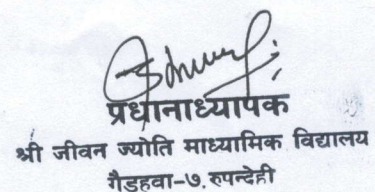 प्रधानाध्यापक
श्री जीवन ज्योति माध्यामिक विद्यालय
गैडहवा-७, रुपन्देही